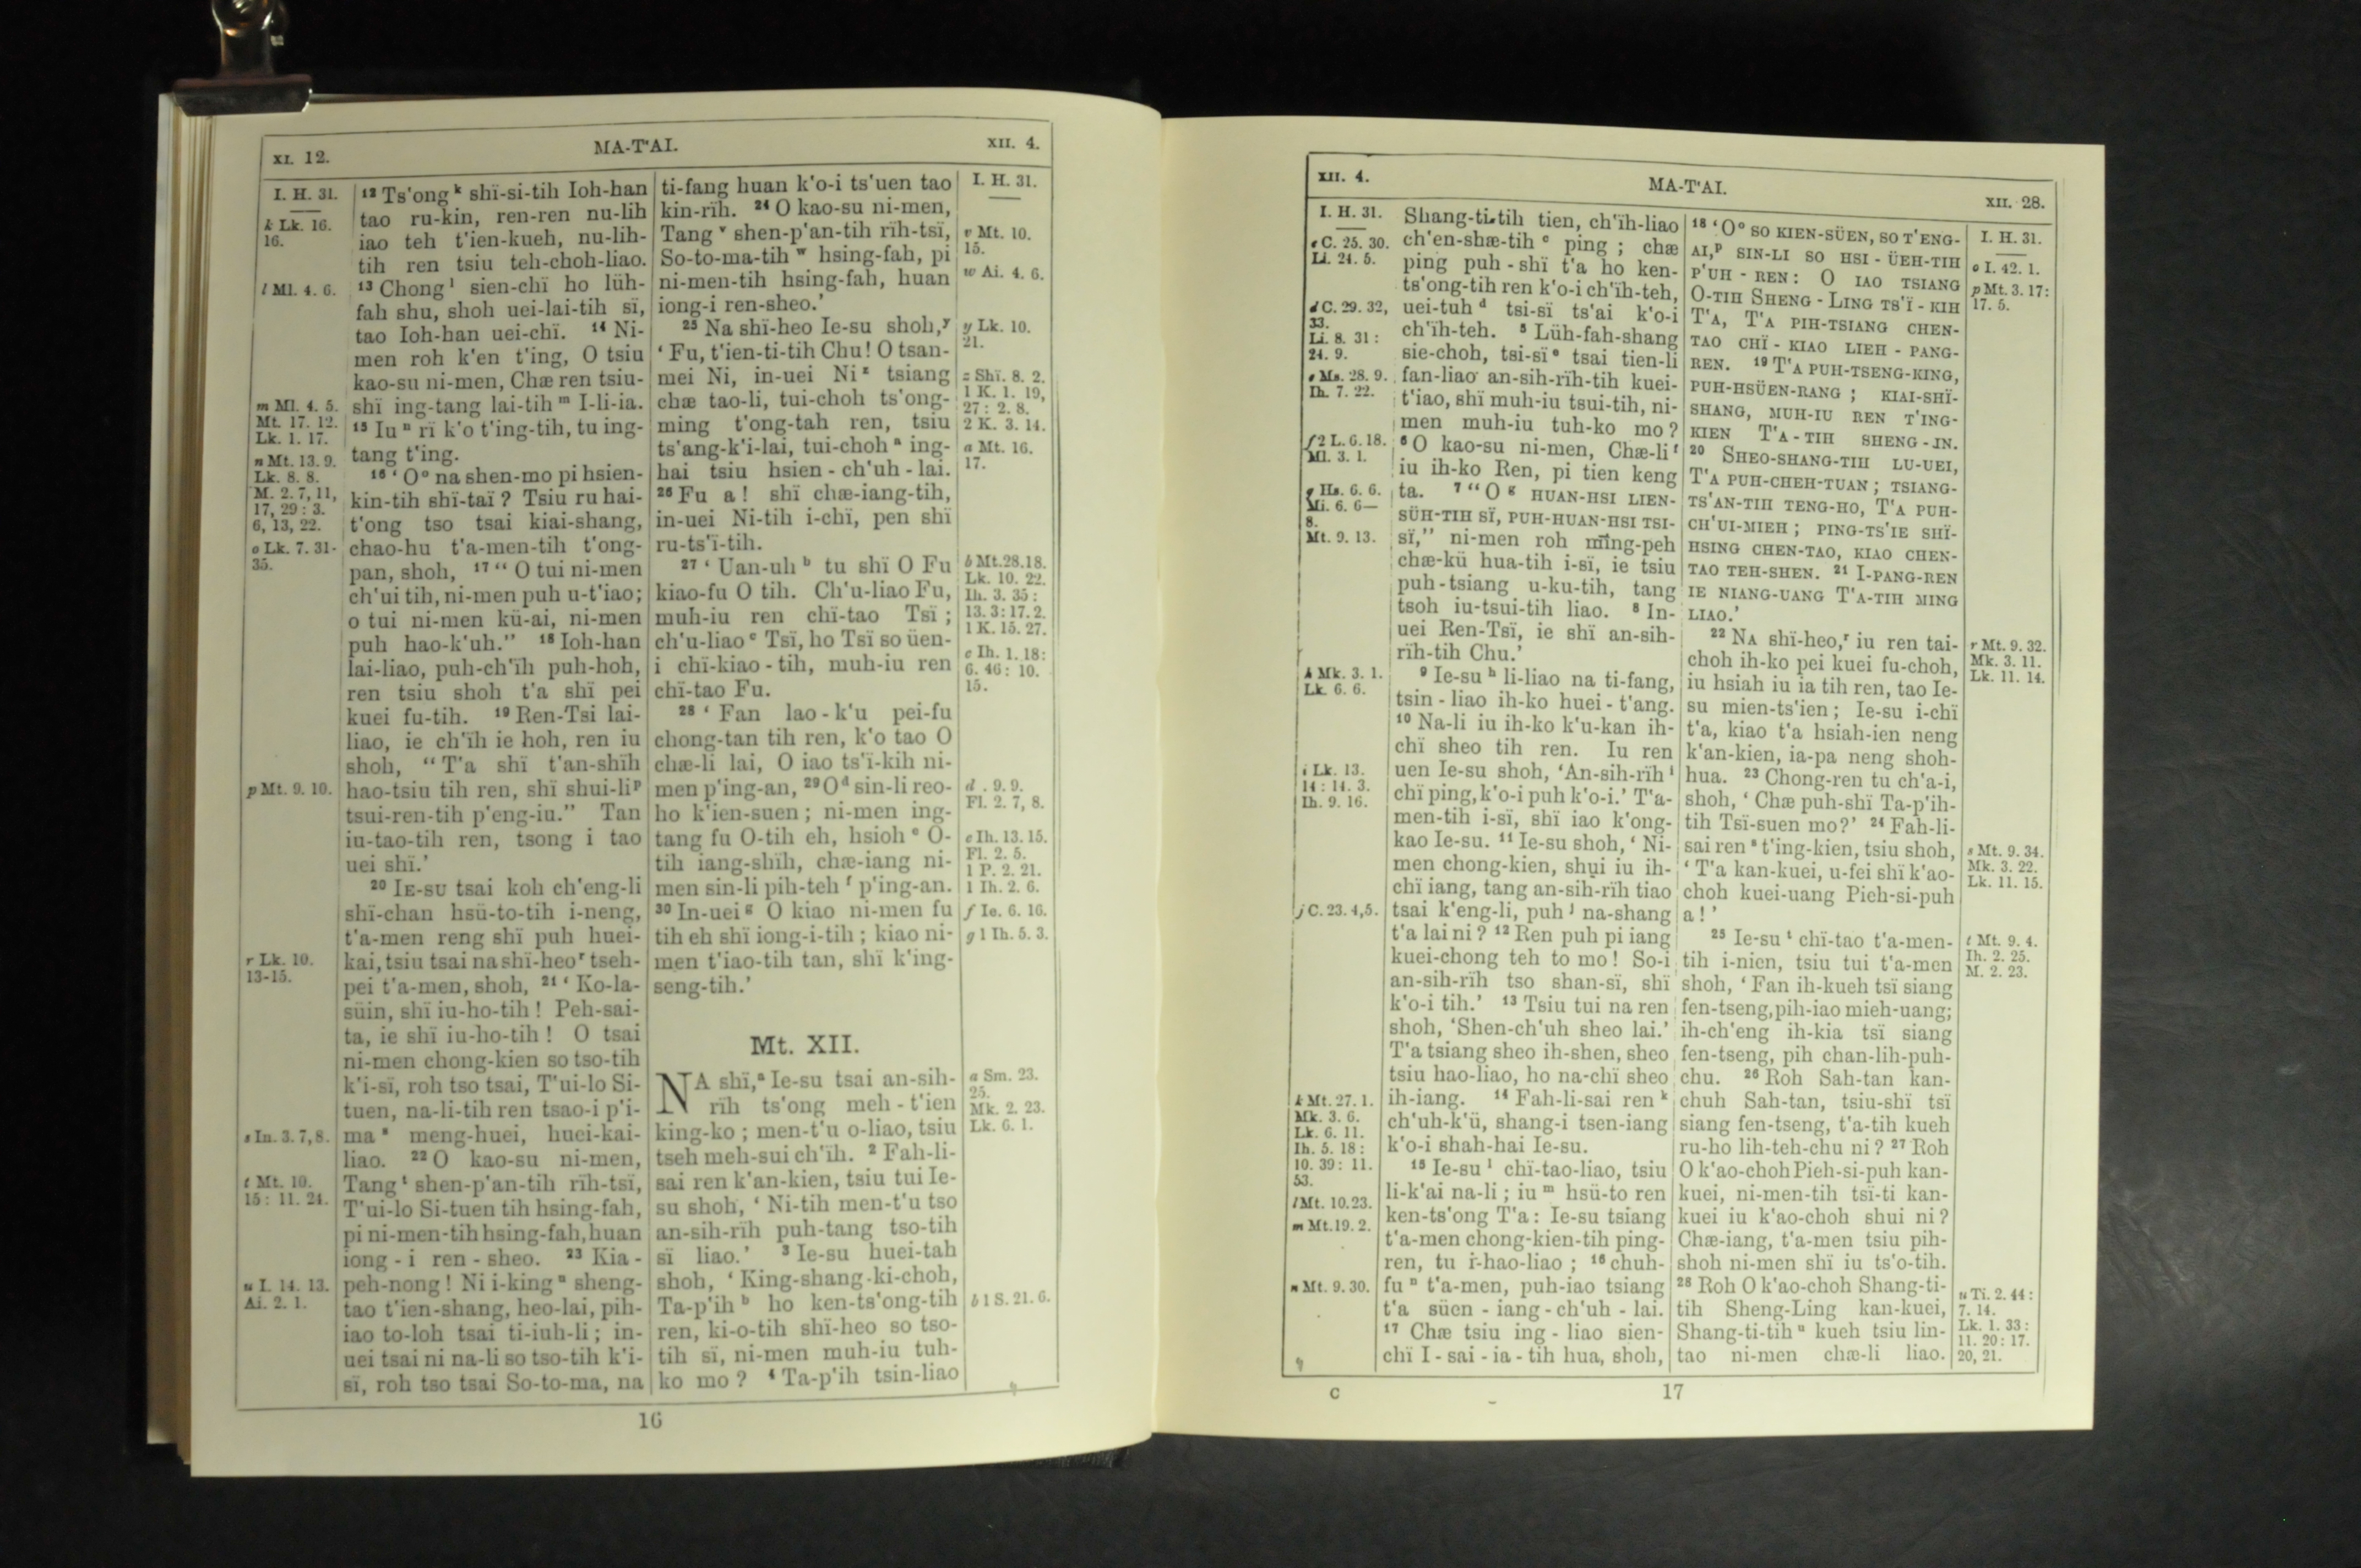 XI. 12.
MA-T'AI.
XII. 4.
I. H. 31.
k Lk. 16.
16.
l Ml. 4. 6.
m Ml. 4. 5.
Mt. 17. 12.
Lk. 1. 17.
n Mt. 13. 9.
Lk. 8. 8.
M. 2. 7, 11,
17, 29 : 3.
6, 13, 22.
o Lk. 7. 31-
35.
p Mt. 9. 10.
r Lk. 10.
13-15.
s In. 3. 7, 8.
t Mt. 10.
15 : 11. 24.
u I. 14. 13.
Ai. 2. 1.
12 Ts'ong k shï-si-tih Ioh-han
tao ru-kin, ren-ren nu-lih
iao teh t'ien-kueh, nu-lih-
tih ren tsiu teh-choh-liao.
13 Chong l sien-chï ho lüh-
fah shu, shoh uei-lai-tih sï,
tao Ioh-han uei-chï. 14 Ni-
men roh k'en t'ing, O tsiu
kao-su ni-men, Chæ ren tsiu-
shï ing-tang lai-tih m I-li-ia.
15 Iu n rï k'o t'ing-tih, tu ing-
tang t'ing.
16 ‘ O o na shen-mo pi hsien-
kin-tih shï-taï ? Tsiu ru hai-
t'ong tso tsai kiai-shang,
chao-hu t'a-men-tih t'ong-
pan, shoh, 17 “ O tui ni-men
ch'ui tih, ni-men puh u-t'iao;
o tui ni-men kü-ai, ni-men
puh hao-k'uh.” 18 Ioh-han
lai-liao, puh-ch'ïh puh-hoh,
ren tsiu shoh t'a shï pei
kuei fu-tih. 19 Ren-Tsi lai-
liao, ie ch'ïh ie hoh, ren iu
shoh, “ T'a shï t'an-shïh
hao-tsiu tih ren, shï shui-li p
tsui-ren-tih p'eng-iu.” Tan
iu-tao-tih ren, tsong i tao
uei shï.’
20 IE-SU tsai koh ch'eng-li
shï-chan hsü-to-tih i-neng,
t'a-men reng shï puh huei-
kai, tsiu tsai na shï-heo r tseh-
pei t'a-men, shoh, 21 ‘ Ko-la-
süin, shï iu-ho-tih ! Peh-sai-
ta, ie shï iu-ho-tih ! O tsai
ni-men chong-kien so tso-tih
k'i-sï, roh tso tsai, T'ui-lo Si-
tuen, na-li-tih ren tsao-i p'i-
ma s meng-huei, huei-kai-
liao. 22 O kao-su ni-men,
Tang t shen-p'an-tih rïh-tsï,
T'ui-lo Si-tuen tih hsing-fah,
pi ni-men-tih hsing-fah, huan
iong - i ren - sheo. 23 Kia -
peh-nong ! Ni i-king u sheng-
tao t'ien-shang, heo-lai, pih-
iao to-loh tsai ti-iuh-li ; in-
uei tsai ni na-li so tso-tih k'i-
sï, roh tso tsai So-to-ma, na
ti-fang huan k'o-i ts'uen tao
kin-rïh. 24 O kao-su ni-men,
Tang v shen-p'an-tih rïh-tsï,
So-to-ma-tih w hsing-fah, pi
ni-men-tih hsing-fah, huan
iong-i ren-sheo.’
25 Na shï-heo Ie-su shoh, y
‘ Fu, t'ien-ti-tih Chu ! O tsan-
mei Ni, in-uei Ni z tsiang
chæ tao-li, tui-choh ts'ong-
ming t'ong-tah ren, tsiu
ts'ang-k'i-lai, tui-choh a ing-
hai tsiu hsien - ch'uh - lai.
26 Fu a ! shï chæ-iang-tih,
in-uei Ni-tih i-chï, pen shï
ru-ts'ï-tih.
27 ‘ Uan-uh b tu shï O Fu
kiao-fu O tih. Ch'u-liao Fu,
muh-iu ren chï-tao Tsï ;
ch'u-liao c Tsï, ho Tsï so üen-
i chï-kiao - tih, muh-iu ren
chï-tao Fu.
28 ‘ Fan lao - k'u pei-fu
chong-tan tih ren, k'o tao O
chæ-li lai, O iao ts'ï-kih ni-
men p'ing-an, 29 O d sin-li reo-
ho k'ien-suen ; ni-men ing-
tang fu O-tih eh, hsioh e O-
tih iang-shïh, chæ-iang ni-
men sin-li pih-teh f p'ing-an.
30 In-uei g O kiao ni-men fu
tih eh shï iong-i-tih ; kiao ni-
men t'iao-tih tan, shï k'ing-
seng-tih.’
Mt. XII.
NA shï, a Ie-su tsai an-sih-
rïh ts'ong meh - t'ien
king-ko ; men-t'u o-liao, tsiu
tseh meh-sui ch'ïh. 2 Fah-li-
sai ren k'an-kien, tsiu tui Ie-
su shoh, ‘ Ni-tih men-t'u tso
an-sih-rïh puh-tang tso-tih
sï liao.’ 3 Ie-su huei-tah
shoh, ‘ King-shang-ki-choh,
Ta-p'ih b ho ken-ts'ong-tih
ren, ki-o-tih shï-heo so tso-
tih sï, ni-men muh-iu tuh-
ko mo ? 4 Ta-p'ih tsin-liao
I. H. 31.
v Mt. 10.
15.
w Ai. 4. 6.
y Lk. 10.
21.
z Shï. 8. 2.
1 K. 1. 19,
27 : 2. 8.
2 K. 3. 14.
a Mt. 16.
17.
b Mt. 28. 18.
Lk. 10. 22.
Ih. 3. 35 :
13. 3 : 17. 2.
1 K. 15. 27.
c Ih. 1. 18 :
6. 46 : 10.
15.
d . 9. 9.
Fl. 2. 7, 8.
e Ih. 13. 15.
Fl. 2. 5.
1 P. 2. 21.
1 Ih. 2. 6.
f Ie. 6. 16.
g 1 Ih. 5. 3.
a Sm. 23.
25.
Mk. 2. 23.
Lk. 6. 1.
b 1 S. 21. 6.
16
XII. 4.
MA-T'AI.
XII. 28.
I. H. 31.
c C. 25. 30.
Li. 24. 5.
d C. 29. 32,
33.
Li. 8. 31 :
24. 9.
e Ms. 28. 9.
Ih. 7. 22.
f 2 L. 6. 18.
Ml. 3. 1.
g Hs. 6. 6.
Mi. 6. 6—
8.
Mt. 9. 13.
h Mk. 3. 1.
Lk. 6. 6.
i Lk. 13.
14 : 14. 3.
Ih. 9. 16.
j C. 23. 4, 5.
k Mt. 27. 1.
Mk. 3. 6.
Lk. 6. 11.
Ih. 5. 18 :
10. 39 : 11.
53.
l Mt. 10. 23.
m Mt. 19. 2.
n Mt. 9. 30.
Shang-ti-tih tien, ch'ïh-liao
ch'en-shæ-tih c ping ; chæ
ping puh - shï t'a ho ken-
ts'ong-tih ren k'o-i ch'ïh-teh,
uei-tuh d tsi-sï ts'ai k'o-i
ch'ïh-teh. 5 Lüh-fah-shang
sie-choh, tsi-sï e tsai tien-li
fan-liao an-sih-rïh-tih kuei-
t'iao, shï muh-iu tsui-tih, ni-
men muh-iu tuh-ko mo ?
6 O kao-su ni-men, Chæ-li f
iu ih-ko Ren, pi tien keng
ta. 7 “ O g HUAN-HSI LIEN-
SÜH-TIH SÏ, PUH-HUAN-HSI TSI-
SÏ,” ni-men roh ming-peh
chæ-kü hua-tih i-sï, ie tsiu
puh - tsiang u-ku-tih, tang
tsoh iu-tsui-tih liao. 8 In-
uei Ren-Tsï, ie shï an-sih-
rïh-tih Chu.’
9 Ie-su h li-liao na ti-fang,
tsin - liao ih-ko huei - t'ang.
10 Na-li iu ih-ko k'u-kan ih-
chï sheo tih ren. Iu ren
uen Ie-su shoh, ‘An-sih-rïh i
chï ping, k'o-i puh k'o-i.’ T'a-
men-tih i-sï, shï iao k'ong-
kao Ie-su. 11 Ie-su shoh, ‘ Ni-
men chong-kien, shui iu ih-
chï iang, tang an-sih-rïh tiao
tsai k'eng-li, puh j na-shang
t'a lai ni ? 12 Ren puh pi iang
kuei-chong teh to mo ! So-i
an-sih-rïh tso shan-sï, shï
k'o-i tih.’ 13 Tsiu tui na ren
shoh, ‘Shen-ch'uh sheo lai.’
T'a tsiang sheo ih-shen, sheo
tsiu hao-liao, ho na-chï sheo
ih-iang. 14 Fah-li-sai ren k
ch'uh-k'ü, shang-i tsen-iang
k'o-i shah-hai Ie-su.
15 Ie-su l chï-tao-liao, tsiu
li-k'ai na-li ; iu m hsü-to ren
ken-ts'ong T'a : Ie-su tsiang
t'a-men chong-kien-tih ping-
ren, tu i-hao-liao ; 16 chuh-
fu n t'a-men, puh-iao tsiang
t'a süen - iang - ch'uh - lai.
17 Chæ tsiu ing - liao sien-
chï I - sai - ia - tih hua, shoh,
18 ‘ O o SO KIEN-SÜEN, SO T'ENG-
AI, p SIN-LI SO HSI - ÜEH-TIH
P'UH - REN : O IAO TSIANG
O-TIH SHENG - LING TS'Ï - KIH
T'A, T'A PIH-TSIANG CHEN-
TAO CHÏ - KIAO LIEH - PANG-
REN. 19 T'A PUH-TSENG-KING,
PUH-HSÜEN-RANG ; KIAI-SHÏ-
SHANG, MUH-IU REN T'ING-
KIEN T'A - TIH SHENG - IN.
20 SHEO-SHANG-TIH LU-UEI,
T'A PUH-CHEH-TUAN ; TSIANG-
TS'AN-TIH TENG-HO, T'A PUH-
CH'UI-MIEH ; PING-TS'IE SHÏ-
HSING CHEN-TAO, KIAO CHEN-
TAO TEH-SHEN. 21 I-PANG-REN
IE NIANG-UANG T'A-TIH MING
LIAO.’
22 NA shï-heo, r iu ren tai-
choh ih-ko pei kuei fu-choh,
iu hsiah iu ia tih ren, tao Ie-
su mien-ts'ien ; Ie-su i-chï
t'a, kiao t'a hsiah-ien neng
k'an-kien, ia-pa neng shoh-
hua. 23 Chong-ren tu ch'a-i,
shoh, ‘ Chæ puh-shï Ta-p'ih-
tih Tsï-suen mo?’ 24 Fah-li-
sai ren s t'ing-kien, tsiu shoh,
‘ T'a kan-kuei, u-fei shï k'ao-
choh kuei-uang Pieh-si-puh
a ! ’
25 Ie-su t chï-tao t'a-men-
tih i-nien, tsiu tui t'a-men
shoh, ‘ Fan ih-kueh tsï siang
fen-tseng, pih-iao mieh-uang;
ih-ch'eng ih-kia tsï siang
fen-tseng, pih chan-lih-puh-
chu. 26 Roh Sah-tan kan-
chuh Sah-tan, tsiu-shï tsï
siang fen-tseng, t'a-tih kueh
ru-ho lih-teh-chu ni ? 27 Roh
O k'ao-choh Pieh-si-puh kan-
kuei, ni-men-tih tsï-ti kan-
kuei iu k'ao-choh shui ni ?
Chæ-iang, t'a-men tsiu pih-
shoh ni-men shï iu ts'o-tih.
28 Roh O k'ao-choh Shang-ti-
tih Sheng-Ling kan-kuei,
Shang-ti-tih u kueh tsiu lin-
tao ni-men chæ-li liao.
I. H. 31.
o I. 42. 1.
p Mt. 3. 17 :
17. 5.
r Mt. 9. 32.
Mk. 3. 11.
Lk. 11. 14.
s Mt. 9. 34.
Mk. 3. 22.
Lk. 11. 15.
t Mt. 9. 4.
Ih. 2. 25.
M. 2. 23.
u Ti. 2. 44 :
7. 14.
Lk. 1. 33 :
11. 20 : 17.
20, 21.
C
17